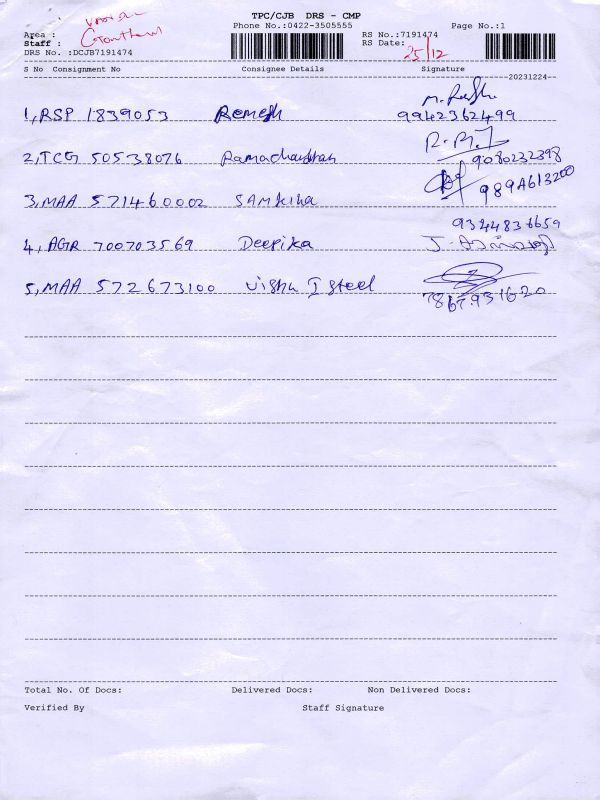 TPC/CJB DRS - CMP
Phone No.:0422-3505555 Page No.:1
Area :
Staff : Gowtham
RS No.:7191474
RS Date: 25/12
DRS No. :DCJB7191474
S No Consignment No Consignee Details Signature
20231224
1, RSP 1839053 Remesh 9942362499
2, TCG 50538076 Ramachandran 9080232398
3, MAA 571460002 Samkiha
9344836659
4, AGR 700703569 Deepika
5, MAA 572673100 Vishu I Steel
7867931620
Total No. Of Docs: Delivered Docs: Non Delivered Docs:
Verified By Staff Signature